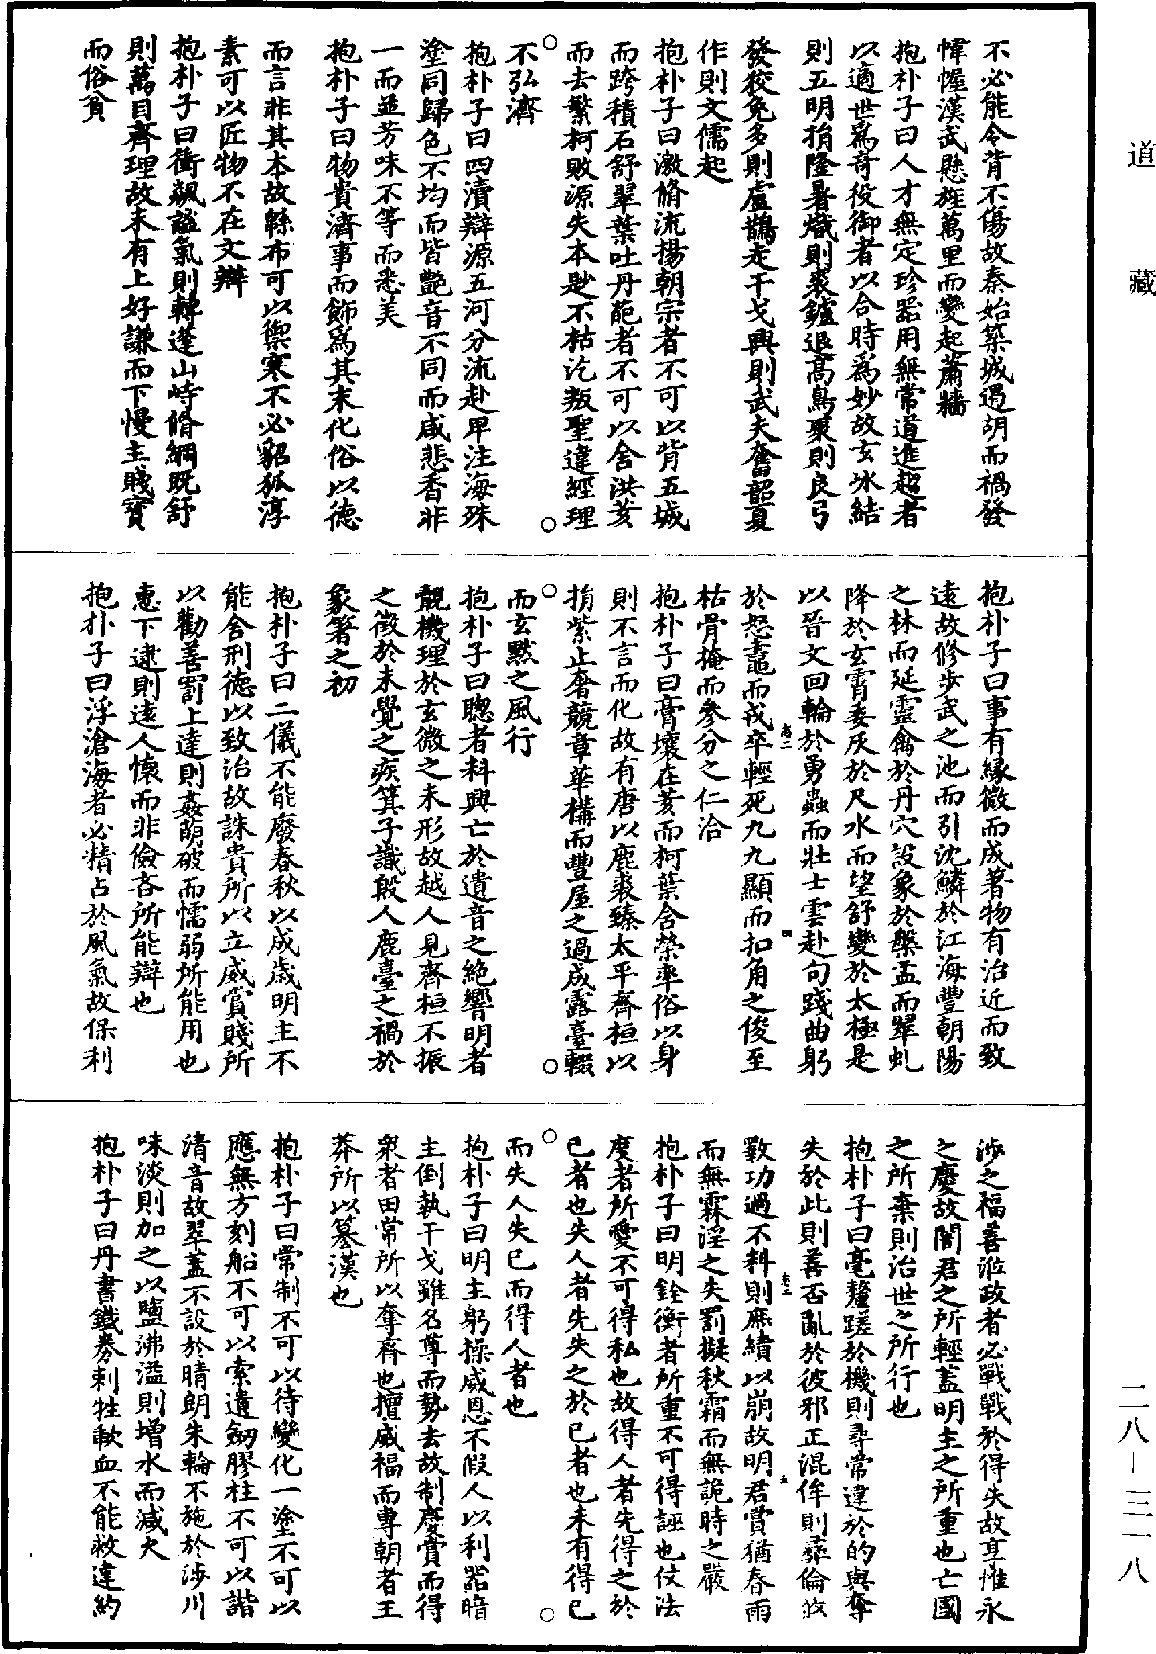 道藏
不必能令背不傷故秦始築城遏胡而禍發
幃幄漢武懸旌萬里而變起蕭牆
抱朴子曰人才無定珍器用無常道進趨者
以適世為奇役御者以合時為妙故玄冰結
則五明捐隆暑熾則裘鑪退高鳥聚則良弓
發狡兔多則盧鵲走干戈興則武夫奮韶夏
作則文儒起
抱朴子曰激脩流揚朝宗者不可以背五城
而跨積石舒翠葉吐丹葩者不可以舍洪荄
而去繁柯敗源失本尟不枯汔叛聖違經理
不弘濟
抱朴子曰四瀆辯源五河分流赴卑注海殊
塗同歸色不均而皆艷音不同而咸悲香非
一而並芳味不等而悉美
抱朴子曰物貴濟事而飾為其末化俗以德
而言非其本故緜布可以禦寒不必貂狐淳
素可以匠物不在文辯
抱朴子曰衝飆謐氣則轉蓬山峙脩綱既舒
則萬目齊理故未有上好謙而下慢主賤寶
而俗貧
抱朴子曰事有緣微而成著物有治近而致
遠故修步武之池而引沈鱗於江海豐朝陽
之林而延靈禽於丹穴設象於槃盂而翠虬
降於玄霄委灰於尺水而望舒變於太極是
以晉文回輪於勇蟲而壯士雲赴句踐曲躬
於怒鼃而戎卒輕死九九顯而扣角之俊至
枯骨掩而參分之仁洽
抱朴子曰膏壤在荄而柯葉含榮率俗以身
則不言而化故有唐以鹿裘臻太平齊桓以
捐紫止奢競章華構而豐屋之過成露臺輟
而玄默之風行
抱朴子曰聰者料興亡於遺音之絕響明者
覿機理於玄微之未形故越人見齊桓不振
之徵於未覺之疾箕子識殷人鹿臺之禍於
象箸之初
抱朴子曰二儀不能廢春秋以成歲明主不
能舍刑德以致治故誅貴所以立威賞賤所
以勸善罰上達則姦萌破而懦弱所能用也
惠下逮則遠人懷而非儉吝所能辯也
抱朴子曰浮滄海者必精占於風氣故保利
涉之福善涖政者必戰戰於得失故享惟永
之慶故闇君之所輕蓋明主之所重也亡國
之所棄則治世之所行也
抱朴子曰毫釐蹉於機則尋常違於的與奪
失於此則善否亂於彼邪正混侔則彝倫攸
斁功過不料則庶績以崩故明君賞猶春雨
而無霖淫之失罰擬秋霜而無詭時之嚴
抱朴子曰明銓衡者所重不可得誣也仗法
度者所愛不可得私也故得人者先得之於
已者也失人者先失之於已者也未有得已
而失人失已而得人者也
抱朴子曰明主躬操威恩不假人以利器暗
主倒執干戈雖名尊而勢去故制慶賞而得
衆者田常所以奪齊也擅威福而專朝者王
莽所以篡漢也
抱朴子曰常制不可以待變化一塗不可以
應無方刻船不可以索遺劒膠柱不可以諧
清音故翠蓋不設於晴朗朱輪不施於涉川
味淡則加之以鹽沸溢則增水而減火
抱朴子曰丹書鐵券刺牲歃血不能救違約
二八—三一八